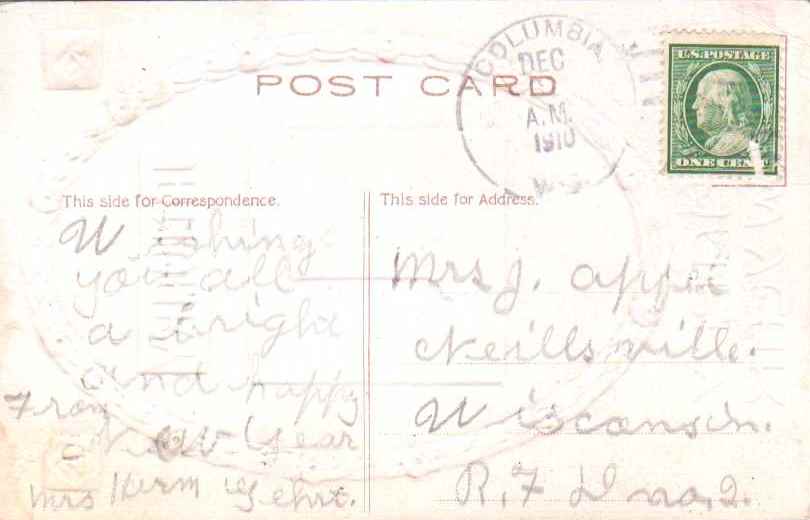 COLUMBIA
DEC
A.M.
1910
WIS.
U.S. POSTAGE
ONE CENT
POST CARD
This side for Correspondence.
Wishing
you all
a bright
and happy
New Year
From
Mrs Herm Gehrt.
This side for Address.
Mrs J. Appi
Neillsville.
Wisconsin.
R, F D no, 2.